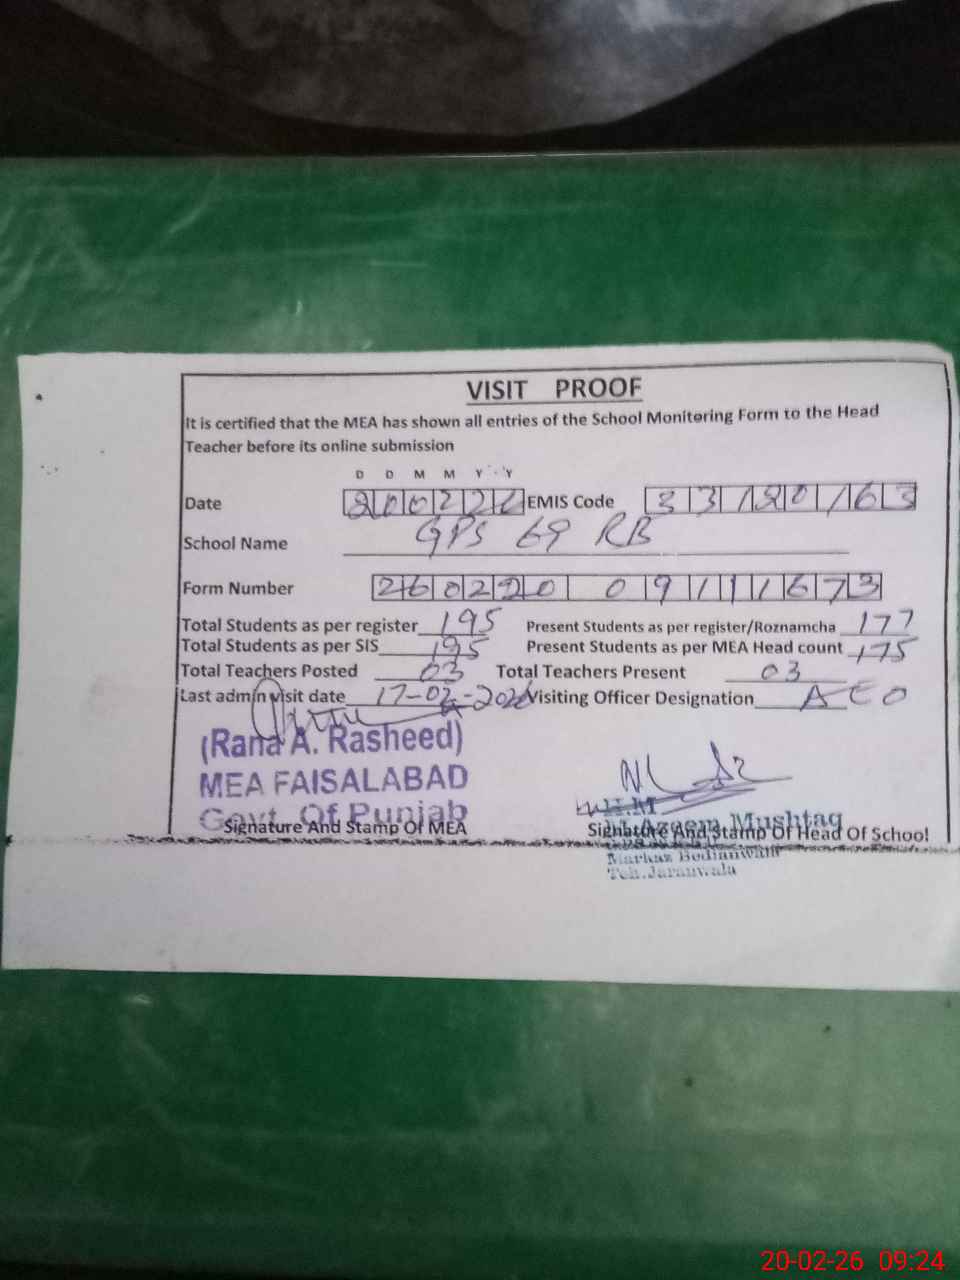 VISIT PROOF
It is certified that the MEA has shown all entries of the School Monitoring Form to the Head
Teacher before its online submission
D D M M Y Y
Date 200226 EMIS Code 33120163
School Name GPS 69 RB
Form Number 260220 0911 1673
Total Students as per register 195 Present Students as per register/Roznamcha 177
Total Students as per SIS 195 Present Students as per MEA Head count 175
Total Teachers Posted 03 Total Teachers Present 03
Last admin visit date 17-02-2026 Visiting Officer Designation AEO
(Rana A. Rasheed)
MEA FAISALABAD
Govt. Of Punjab
Signature And Stamp Of MEA Signature And Stamp Of Head Of School
H.M
Mushtaq
Markaz
Teh. Jaranwala
20-02-26 09:24